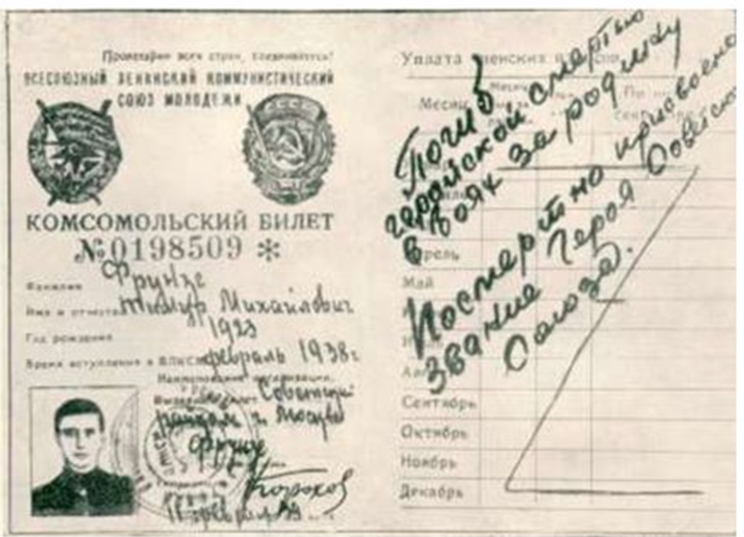 Пролетарии всех стран, соединяйтесь!
ВСЕСОЮЗНЫЙ ЛЕНИНСКИЙ КОММУНИСТИЧЕСКИЙ
СОЮЗ МОЛОДЕЖИ
КОМСОМОЛЬСКИЙ БИЛЕТ
№ 0198509 *
Фамилия Фрунзе
Имя и отчество Тимур Михайлович
Год рождения 1923
Время вступления в ВЛКСМ февраль 1938г
Наименование организации,
Советский
райком г. Москвы
Фрунзе
Уплата членских
Месяц
Апрель
Май
Сентябрь
Октябрь
Ноябрь
Декабрь
Погиб
геройской смертью
в боях за родину
Посмертно присвоено
звание Героя Советско
Союза.